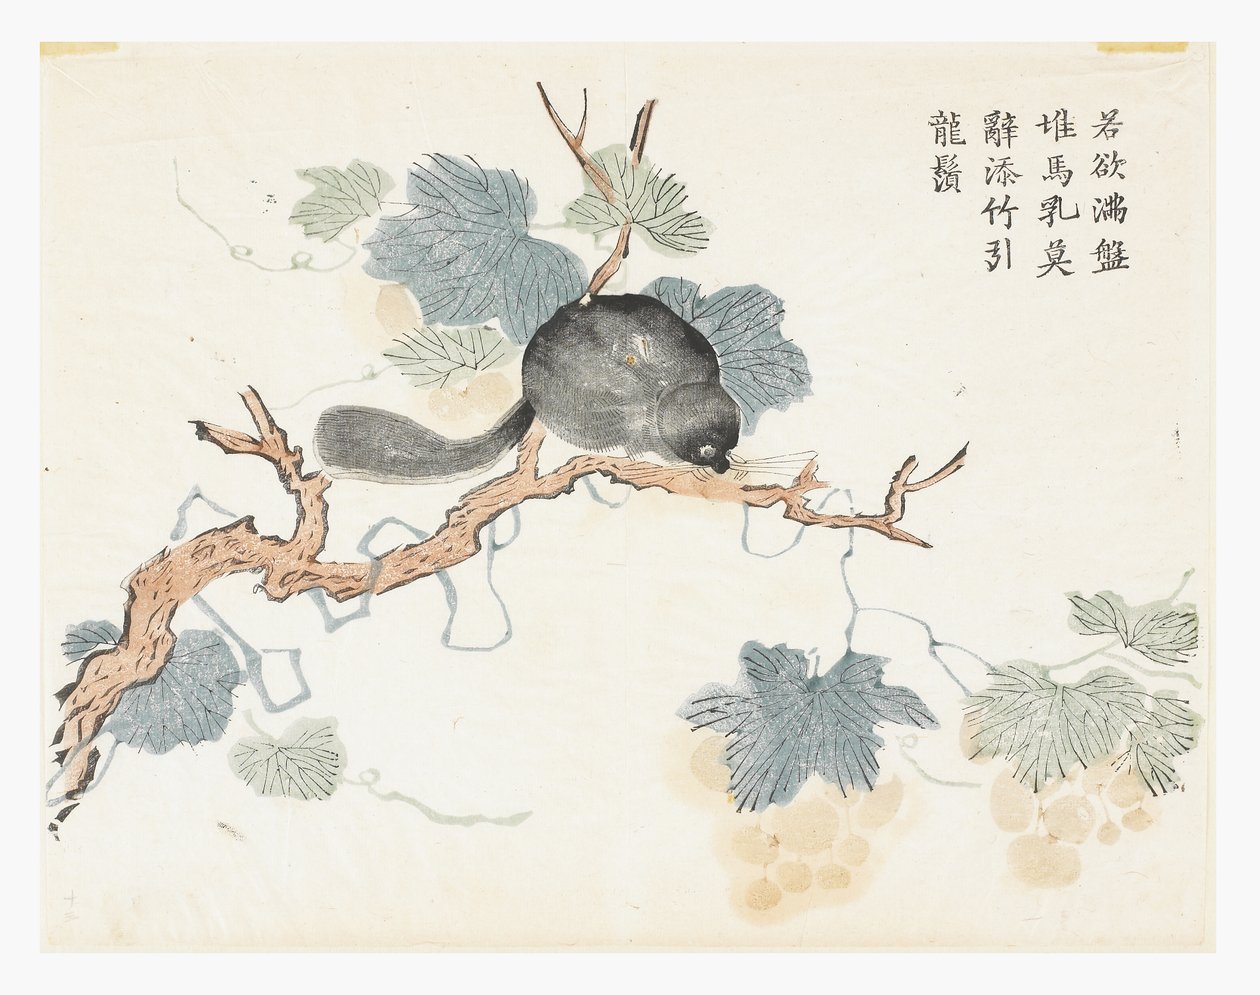 若欲滿盤
堆馬乳莫
辭添竹引
龍鬚
十三